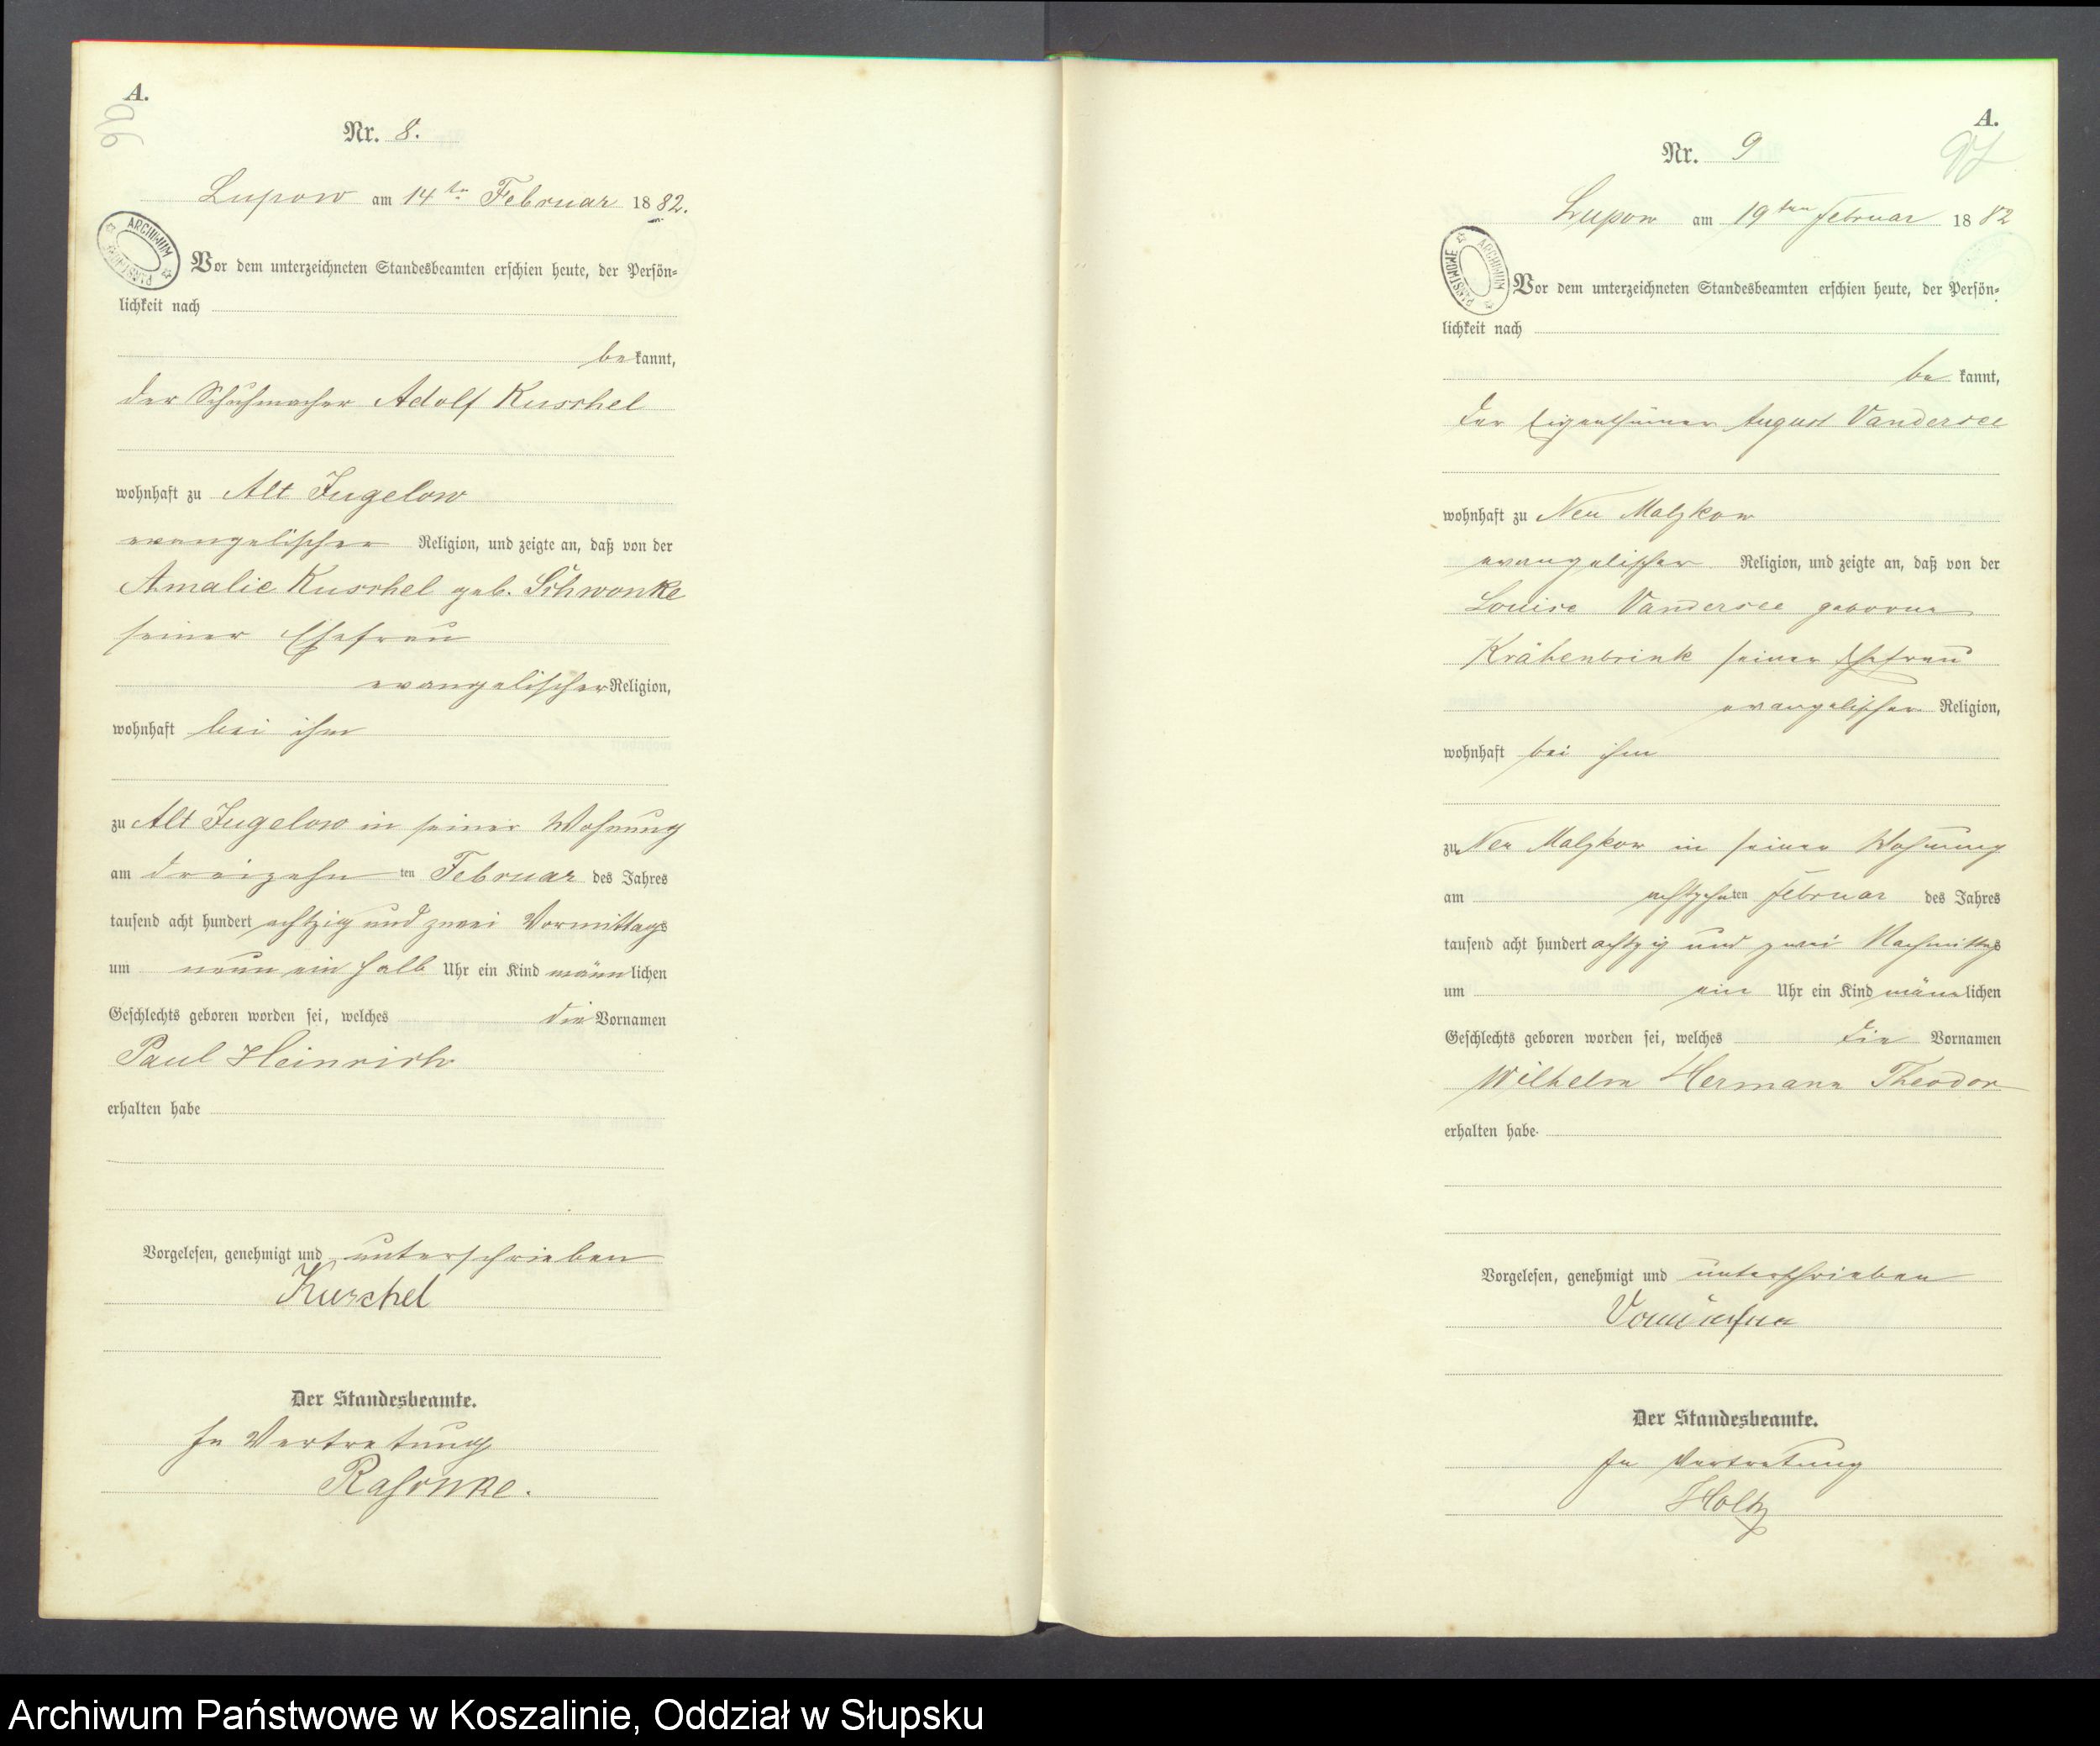 A.
96
Nr. 8.
Lupow am 14ten Februar 1882.
ARCHIWUM PAŃSTWOWE
Vor dem unterzeichneten Standesbeamten erschien heute, der Persön-
lichkeit nach
bekannt,
der Schuhmacher Adolf Kuschel
wohnhaft zu Alt Jugelow
evangelischer Religion, und zeigte an, daß von der
Amalie Kuschel geb. Schwonke
seiner Ehefrau
evangelischer Religion,
wohnhaft bei ihm
zu Alt Jugelow in seiner Wohnung
am dreizehnten Februar des Jahres
tausend acht hundert achtzig und zwei Vormittags
um neun ein halb Uhr ein Kind männlichen
Geschlechts geboren worden sei, welches die Vornamen
Paul Heinrich
erhalten habe
Vorgelesen, genehmigt und unterschrieben
Kuschel
Der Standesbeamte.
In Vertretung
A.
97
Nr. 9
Lupow am 19ten Februar 1882
ARCHIWUM PAŃSTWOWE
Vor dem unterzeichneten Standesbeamten erschien heute, der Persön-
lichkeit nach
bekannt,
der Eigenthümer August Vandersee
wohnhaft zu Neu Malzkow
evangelischer Religion, und zeigte an, daß von der
Louise Vandersee geborne
Krähenbrink seiner Ehefrau
evangelischer Religion,
wohnhaft bei ihm
zu Neu Malzkow in seiner Wohnung
am achtzehnten Februar des Jahres
tausend acht hundert achtzig und zwei Nachmittags
um ein Uhr ein Kind männlichen
Geschlechts geboren worden sei, welches die Vornamen
Wilhelm Hermann Theodor
erhalten habe.
Vorgelesen, genehmigt und unterschrieben
Der Standesbeamte.
In Vertretung
Holtz
Archiwum Państwowe w Koszalinie, Oddział w Słupsku